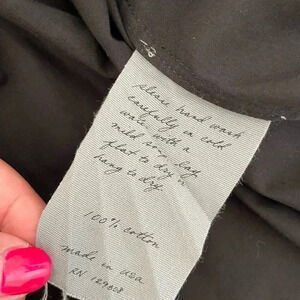 please hand wash
carefully in cold
water with a
mild soap. lay
flat to dry or
hang to dry.
100% cotton
made in usa
RN 129608